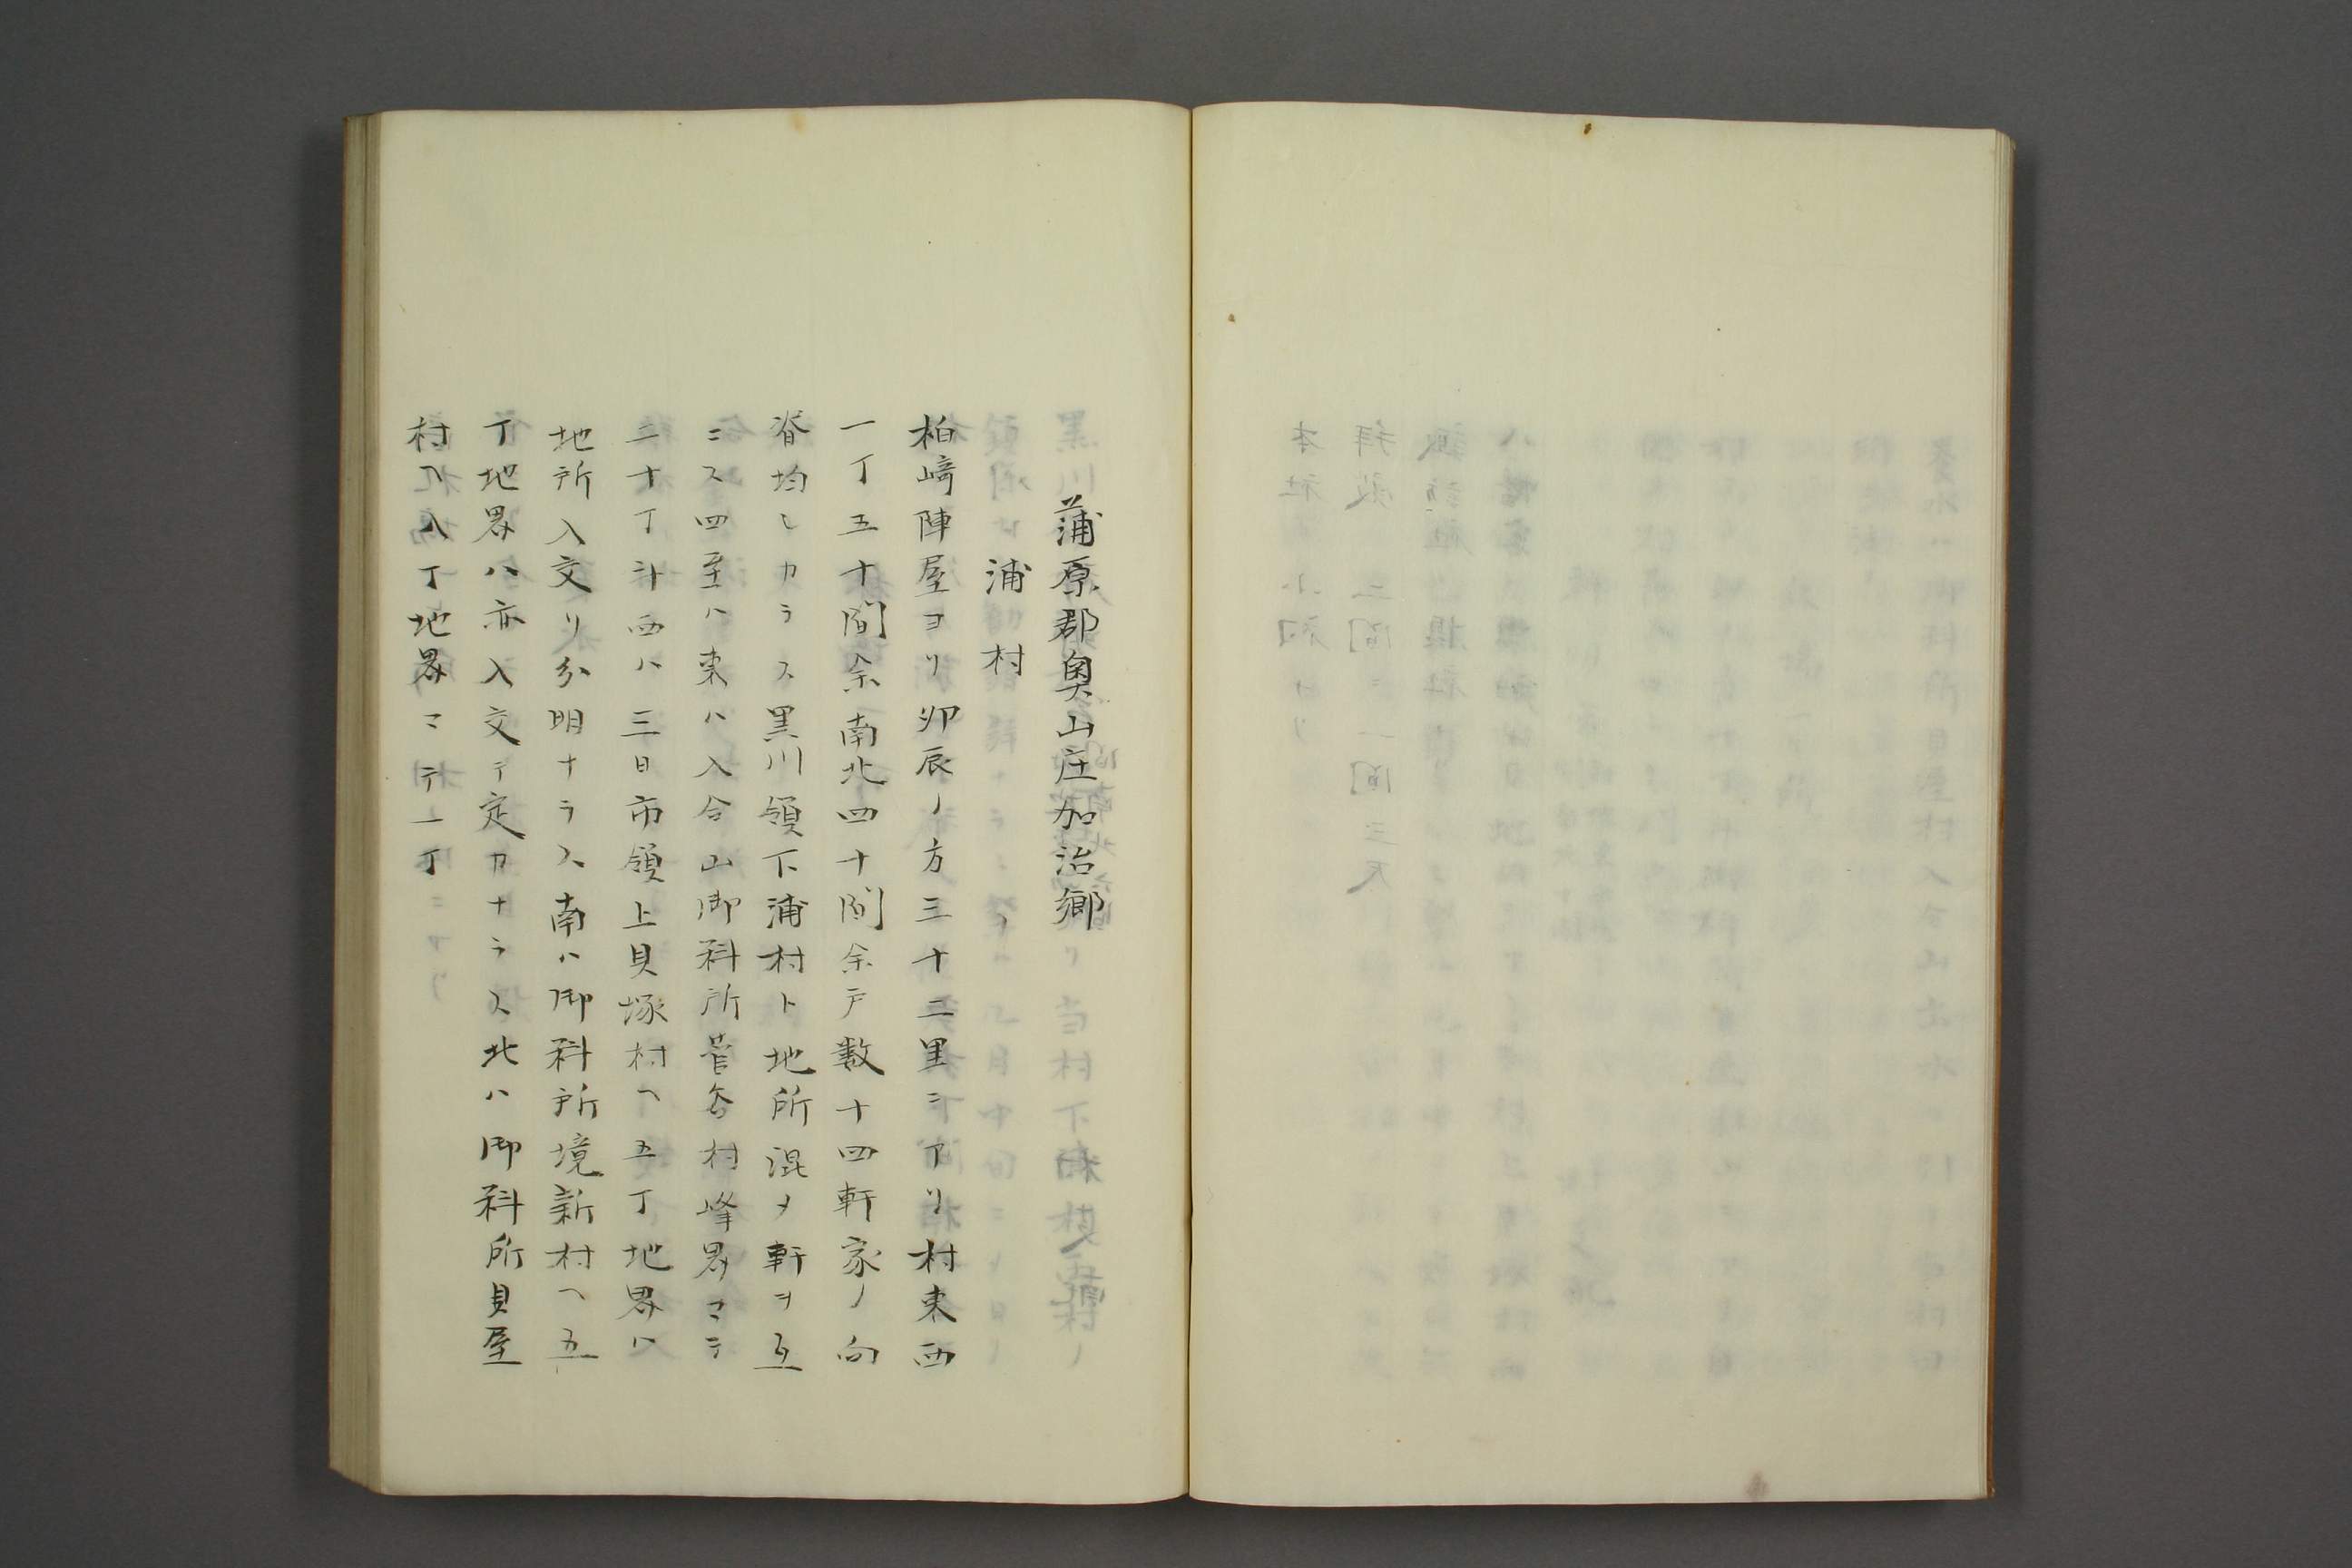 蒲原郡奥山庄加治郷
浦村
柏﨑陣屋ヨリ卯辰ノ方三十二里ニアリ村東西
一丁五十間余南北四十間余戸数十四軒家ノ向
脊均シカラス黒川領下浦村ト地所混メ軒ヲ互
ニス四至ハ東ハ入合山御料所菅谷村峰界マテ
三十丁斗西ハ三日市領上貝塚村ヘ五丁地界ハ
地所入交リ分明ナラス南ハ御料所境新村ヘ五
丁地界ハ亦入交テ定カナラス北ハ御料所貝屋
村ヘ八丁地界マテ一丁